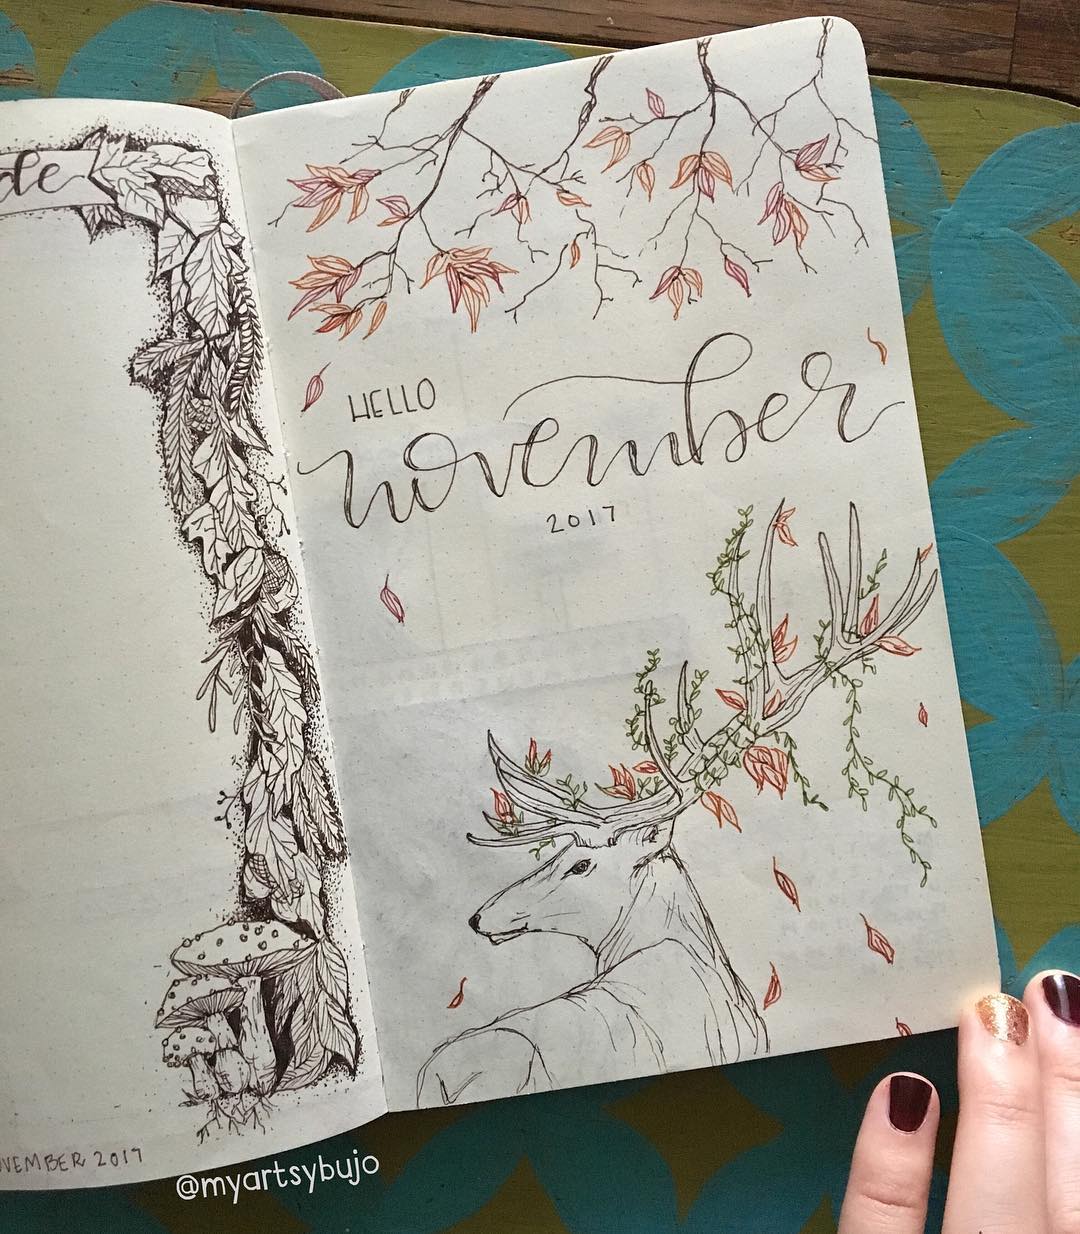 de
HELLO
november
2017
VEMBER 2017
@myartsybujo